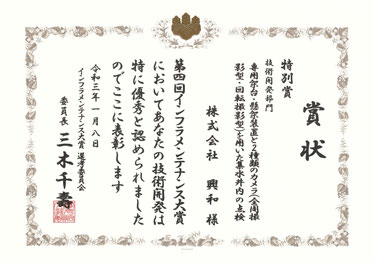 賞状
特別賞
技術開発部門
専用架台・懸架装置と2種類のカメラ(全周撮
影型・回転撮影型)を用いた集水井内の点検
株式会社 興和 様
第四回インフラメンテナンス大賞
においてあなたの技術開発は
特に優秀と認められました
のでここに表彰します
令和三年一月八日
インフラメンテナンス大賞 選考委員会
委員長 三木千壽